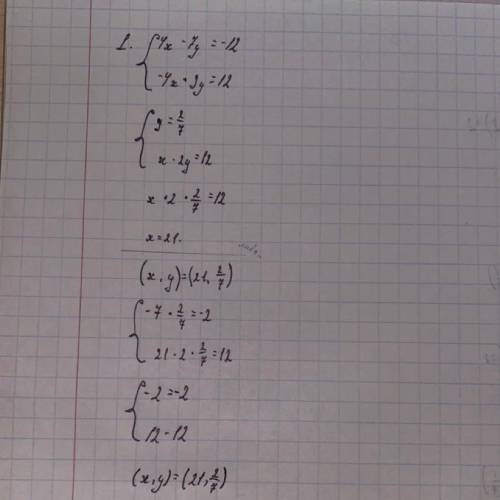 1. { 4x - 7y = -12
-4x + 9y = 12
{ y = 2/7
x · 2y = 12
x · 2 · 2/7 = 12
x = 21.
(x, y) = (21, 2/7)
{ -7 · 2/7 = -2
21 · 2 · 2/7 = 12
{ -2 = -2
12 - 12
(x, y) = (21, 2/7)